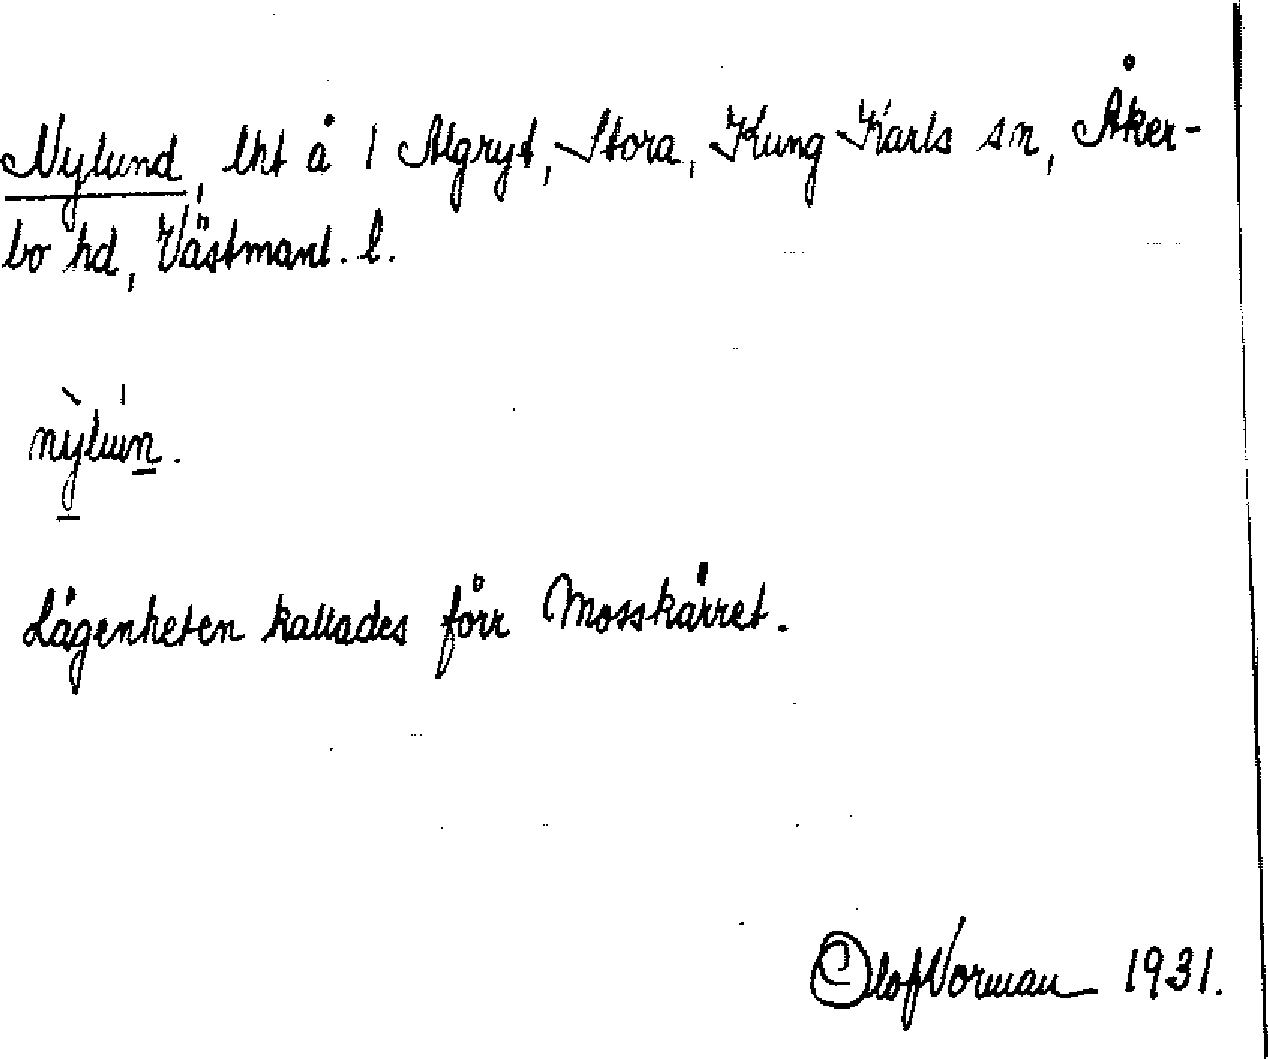 Nylund, lht å 1 Algryt, Stora, Kung Karls sn, Åker-
bo hd, Västmanl. l.
nỳlún.
Lägenheten kallades förr Mosskärret.
Olof Norman 1931.